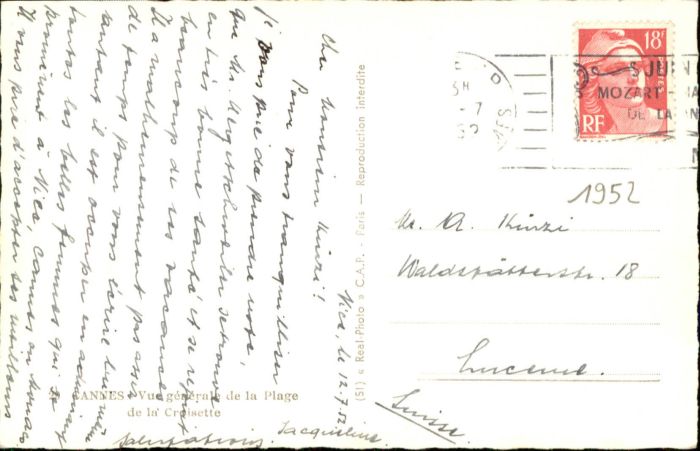 Nice, le 12.7.52
Cher Monsieur Künzi!
Pour vous tranquilliser
je vous prie de prendre note,
que Mr. Hergetschweiler se trouve
en très bonne santé et se repose
beaucoup de ses vacances.
Il a malheureusement pas assez
de temps pour vous écrire lui-même
surtout il est occupé en admirant
toutes les belles femmes qui se
promènent à Nice, Cannes ou Monaco
Il vous prie d'accepter ses meilleurs
salutations. Jacqueline
CANNES - Vue générale de la Plage
de la Croisette
(51) « Real-Photo » C.A.P. - Paris — Reproduction interdite
18F
POSTES
RF
5 JUIN
MOZART
DE LA
1952
Mr. A. Künzi
Waldstätterstr. 18
Lucerne.
Suisse.